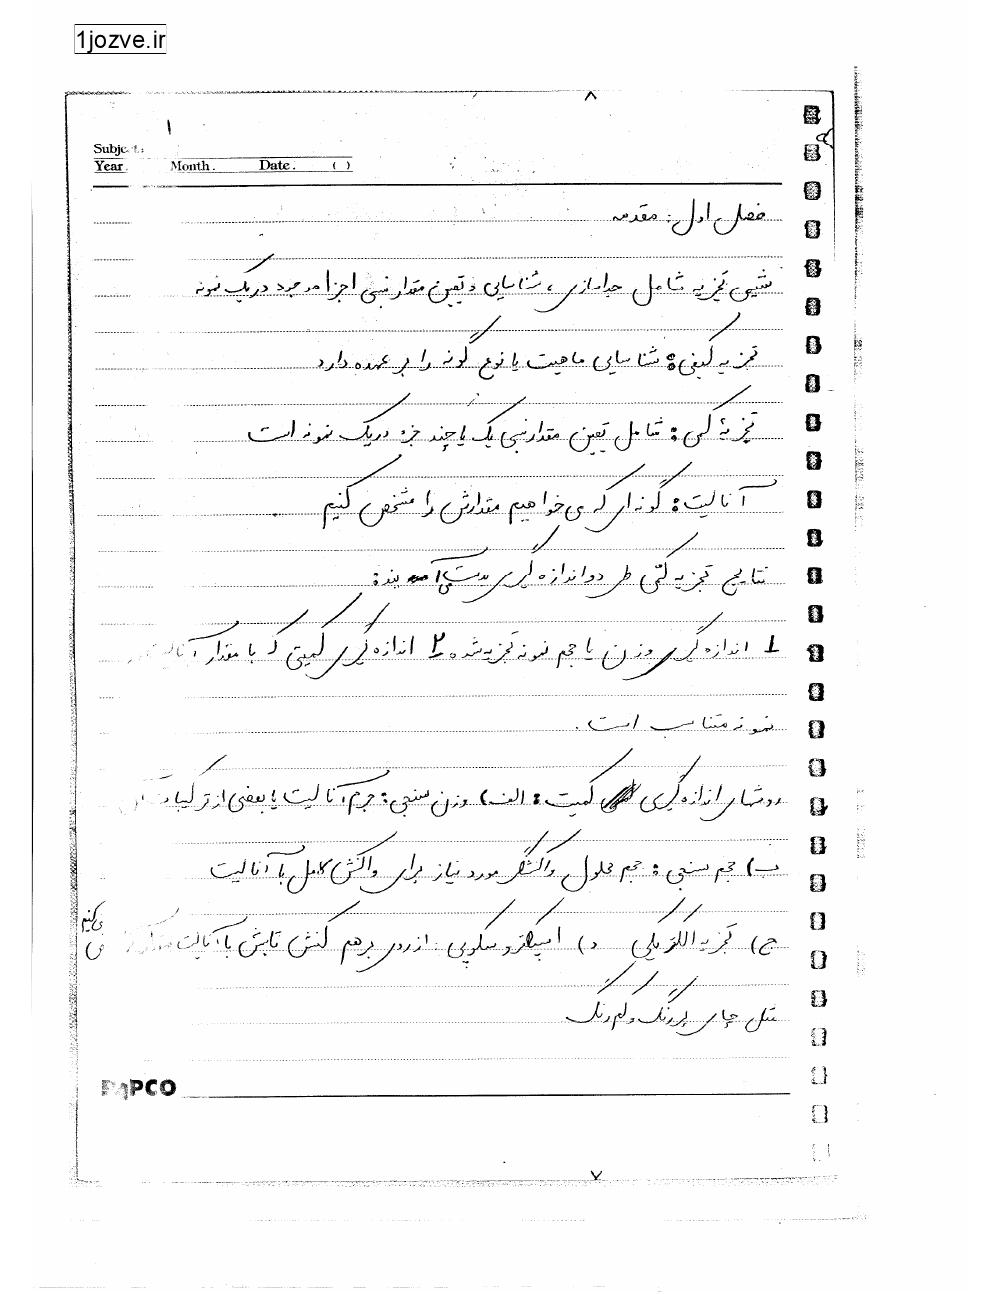 1jozve.ir
۸
۱
Subject:
Year. Month. Date. ( )
فصل اول: مقدمه
شیمی تجزیه شامل جداسازی، شناسایی و تعیین مقدار نسبی اجزا موجود در یک نمونه
تجزیه کیفی: شناسایی ماهیت یا نوع گونه را بر عهده دارد
تجزیه کمی: شامل تعیین مقدار نسبی یک یا چند جزء در یک نمونه است
آنالیت: گونه ای که می خواهیم مقدارش را مشخص کنیم
نتایج تجزیه کمی طی دو اندازه گیری بدست می آیند:
1 اندازه گیری وزن یا حجم نمونه تجزیه شده 2 اندازه گیری کمیتی که با مقدار آنالیت
نمونه متناسب است.
روشهای اندازه گیری کمیت: الف) وزن سنجی: جرم آنالیت یا بعضی از ترکیبات
ب) حجم سنجی: حجم محلول واکنشگر مورد نیاز برای واکنش کامل با آنالیت
ج) تجزیه الکتریکی د) اسپکتروسکوپی: از روی برهم کنش تابش با آنالیت می کنیم
مثل چای پررنگ و کم رنگ
PAPCO
۷